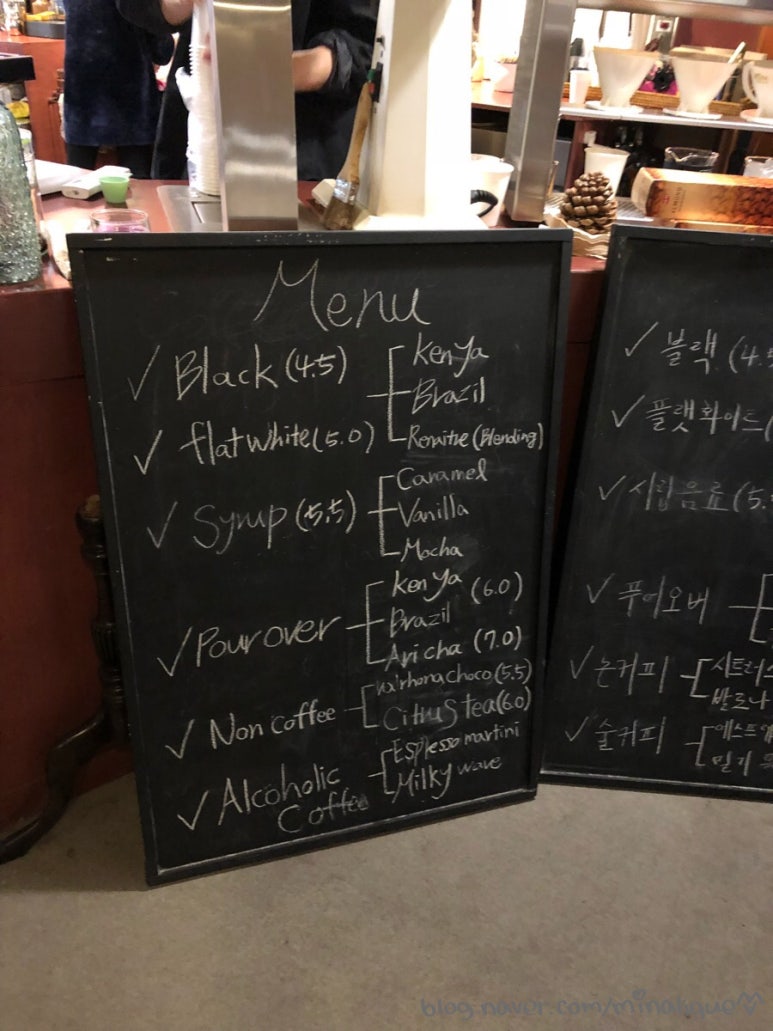 Menu
✓ Black (4.5)
Kenya
Brazil
✓ flat white (5.0)
(Blending)
✓ Syrup (5.5)
Caramel
Vanilla
Mocha
✓ Pour over
Kenya
(6.0)
Brazil
Aricha (7.0)
✓ Non coffee
Valrhona choco (5.5)
Citrus tea (6.0)
✓ Alcoholic Coffee
Espresso martini
Milky wave
✓ 블랙 (4.5
✓ 플랫화이트 (
✓ 시럽음료 (5.
✓ 푸어오버
✓ 논커피
시트러스
발로나
✓ 술커피
에스프레
밀키
blog.naver.com/